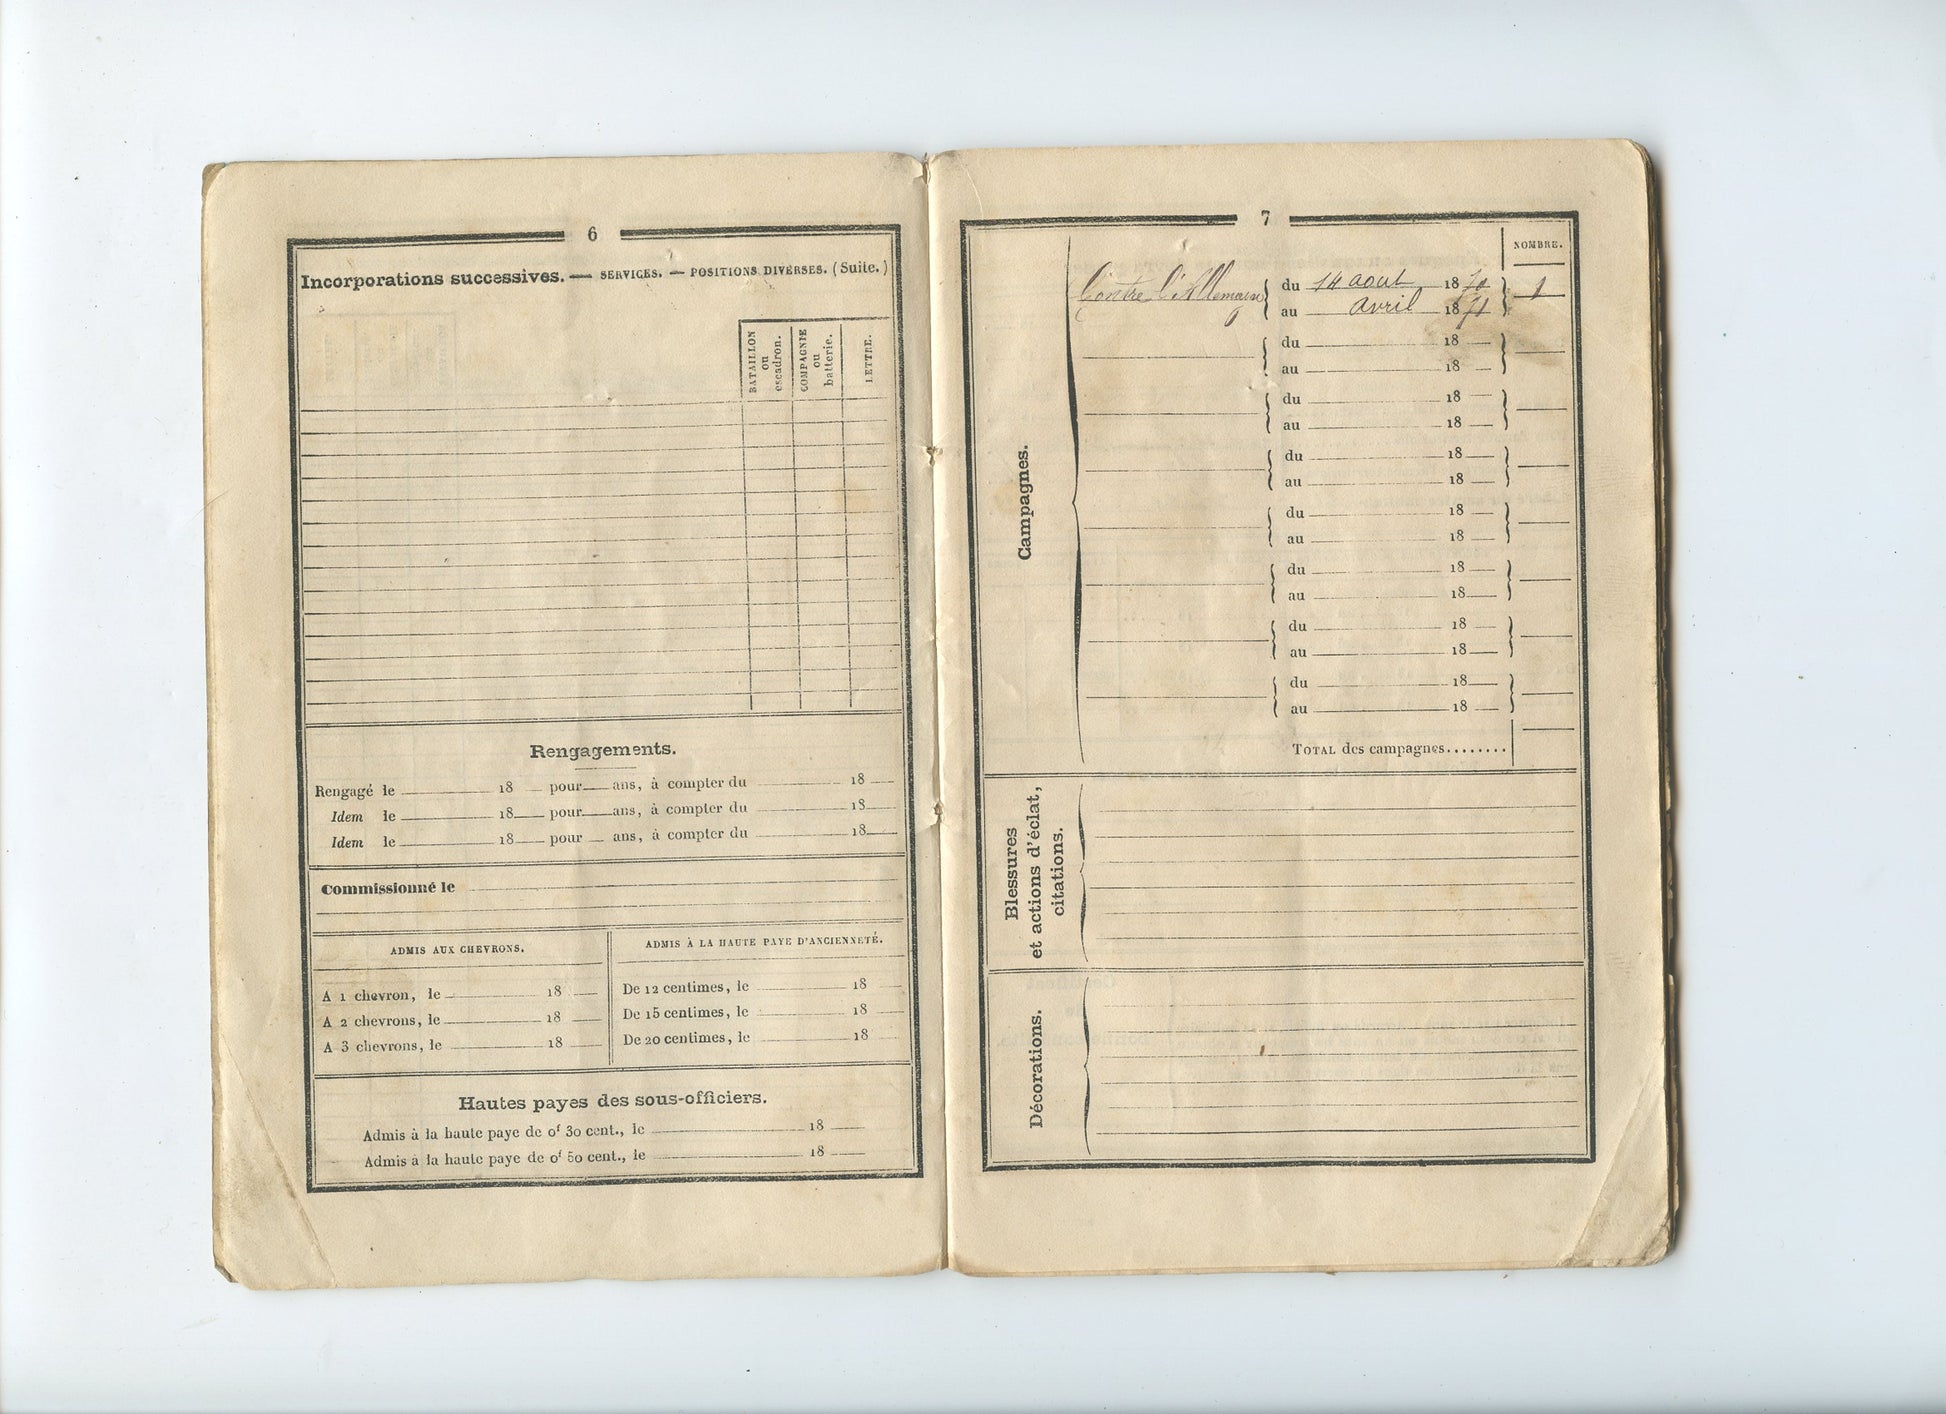 6
Incorporations successives. — SERVICES. — POSITIONS DIVERSES. (Suite.)
BATAILLON
ou
escadron.
COMPAGNIE
ou
batterie.
LETTRE.
Rengagements.
Rengagé le 18 pour ans, à compter du 18
Idem le 18 pour ans, à compter du 18
Idem le 18 pour ans, à compter du 18
Commissionné le
ADMIS AUX CHEVRONS.
A 1 chevron, le 18
A 2 chevrons, le 18
A 3 chevrons, le 18
ADMIS À LA HAUTE PAYE D'ANCIENNETÉ.
De 12 centimes, le 18
De 15 centimes, le 18
De 20 centimes, le 18
Hautes payes des sous-officiers.
Admis à la haute paye de 0f 30 cent., le 18
Admis à la haute paye de 0f 50 cent., le 18
7
NOMBRE.
Campagnes.
Contre l'Allemagne du 14 aout 1870 1
au avril 1871
du 18
au 18
du 18
au 18
du 18
au 18
du 18
au 18
du 18
au 18
du 18
au 18
du 18
au 18
TOTAL des campagnes........
Blessures
et actions d'éclat,
citations.
Décorations.